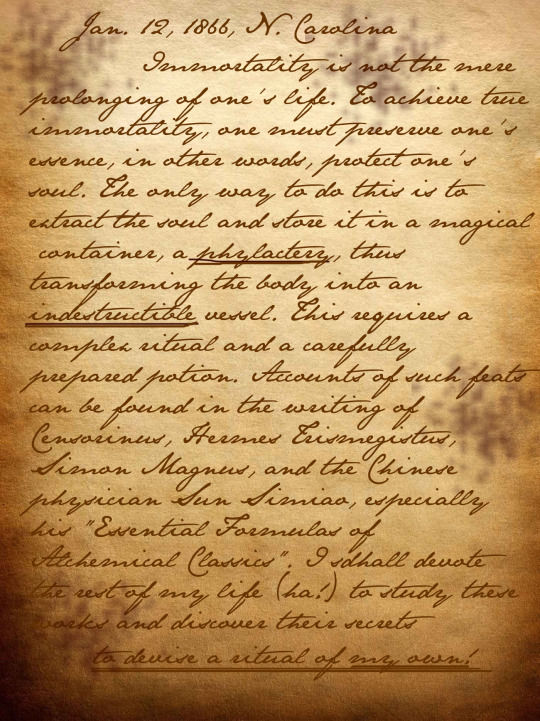 Jan. 12, 1866, N. Carolina
Immortality is not the mere
prolonging of one's life. To achieve true
immortality, one must preserve one's
essence, in other words, protect one's
soul. The only way to do this is to
extract the soul and store it in a magical
container, a phylactery, thus
transforming the body into an
indestructible vessel. This requires a
complex ritual and a carefully
prepared potion. Accounts of such feats
can be found in the writing of
Censorinus, Hermes Trismegistus,
Simon Magnus, and the Chinese
physician Sun Simiao, especially
his "Essential Formulas of
Alchemical Classics". I sdhall devote
the rest of my life (ha!) to study these
works and discover their secrets
to devise a ritual of my own!